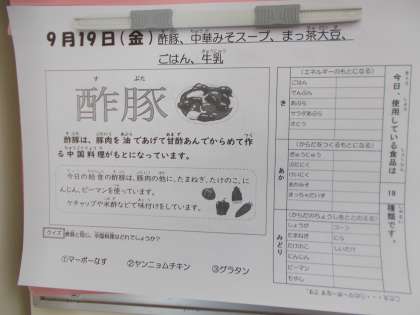 9月19日(金) 酢豚、中華みそスープ、まっ茶大豆、
ごはん、牛乳
す ぶた
酢豚
酢豚は、豚肉を油であげて甘酢あんでからめて作
る中国料理がもとになっています。
今日の給食の酢豚は、豚肉の他に、たまねぎ、たけのこ、に
んじん、ピーマンを使っています。
ケチャップや米酢などで味付けをしています。
クイズ
①マーボーなす ②ヤンニョムチキン ③グラタン
今日、使用している食品は
18
種類です。
(エネルギーのもとになる)
き
ごはん
でんぷん
あぶら
さとう
(からだをつくるもとになる)
あか
ぎゅうにゅう
ぶたにく
(からだのちょうしをととのえる)
みどり
しょうが
コーン
たまねぎ
にら
たけのこ
しいたけ
にんじん
ピーマン
もやし